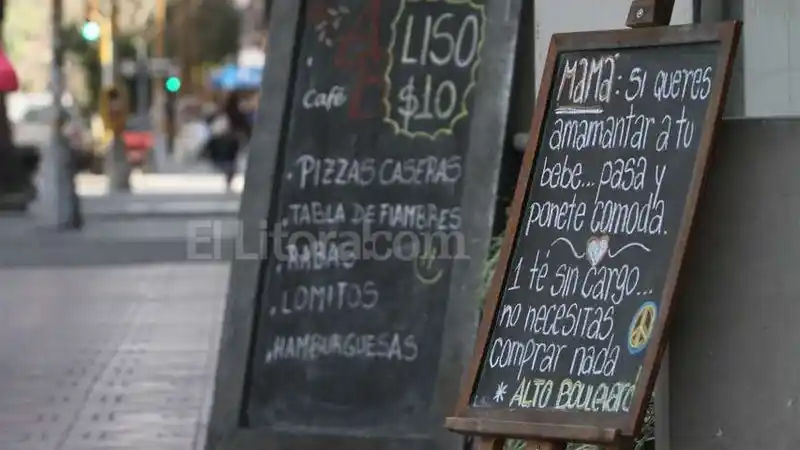 LISO
$10
café
. PIZZAS CASERAS
. TABLA DE FIAMBRES
. RABAS
. LOMITOS
. HAMBURGUESAS
El Litoral.com
MAMÁ: Si queres
amamantar a tu
bebe... pasa y
ponete comoda.
1 té sin cargo...
no necesitas
comprar nada
* ALTO BOULEVARD